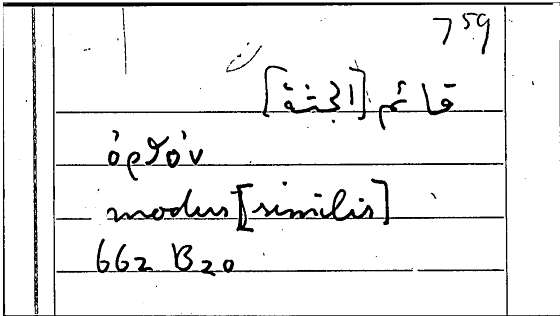 759
قائم [الجثة]
ὀρϑόν
modus [similis]
662 B20